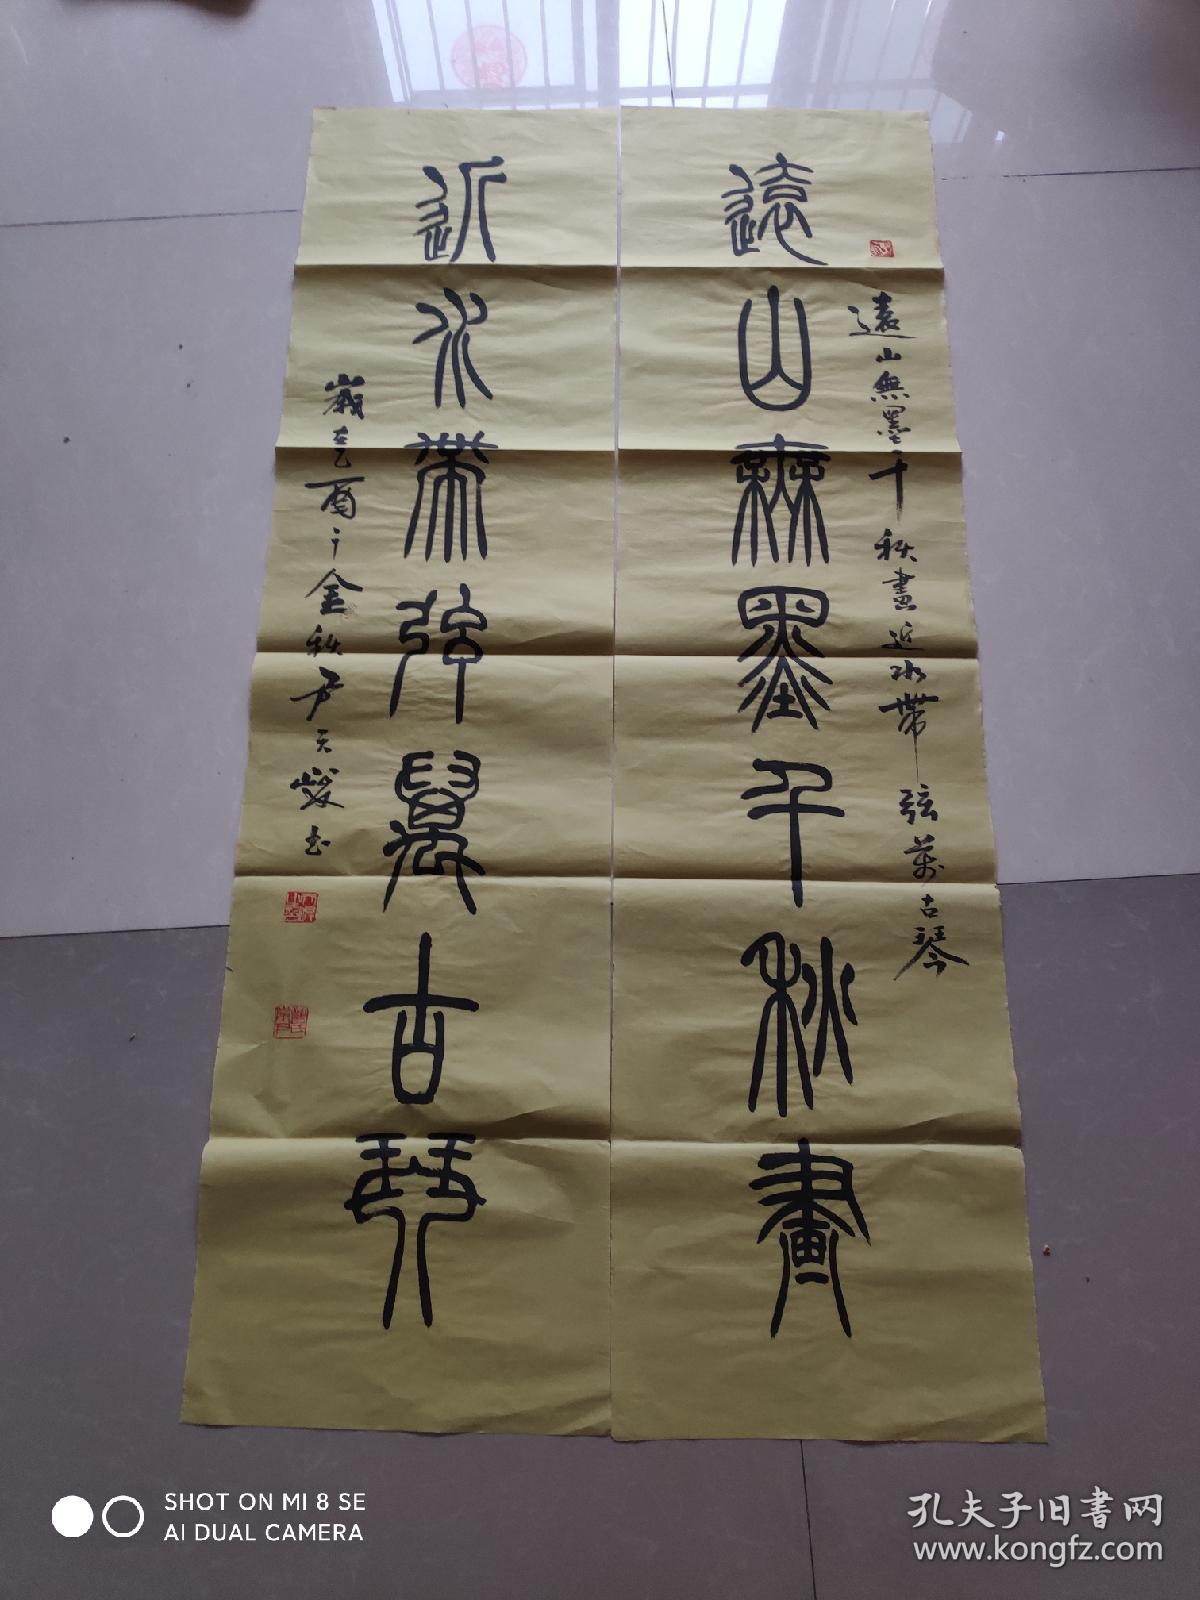 遠山無墨千秋畫
遠山無墨千秋畫近水帶弦萬古琴
近水帶弦萬古琴
歲在乙酉之金秋尹天
SHOT ON MI 8 SE
AI DUAL CAMERA
孔夫子旧书网
www.kongfz.com